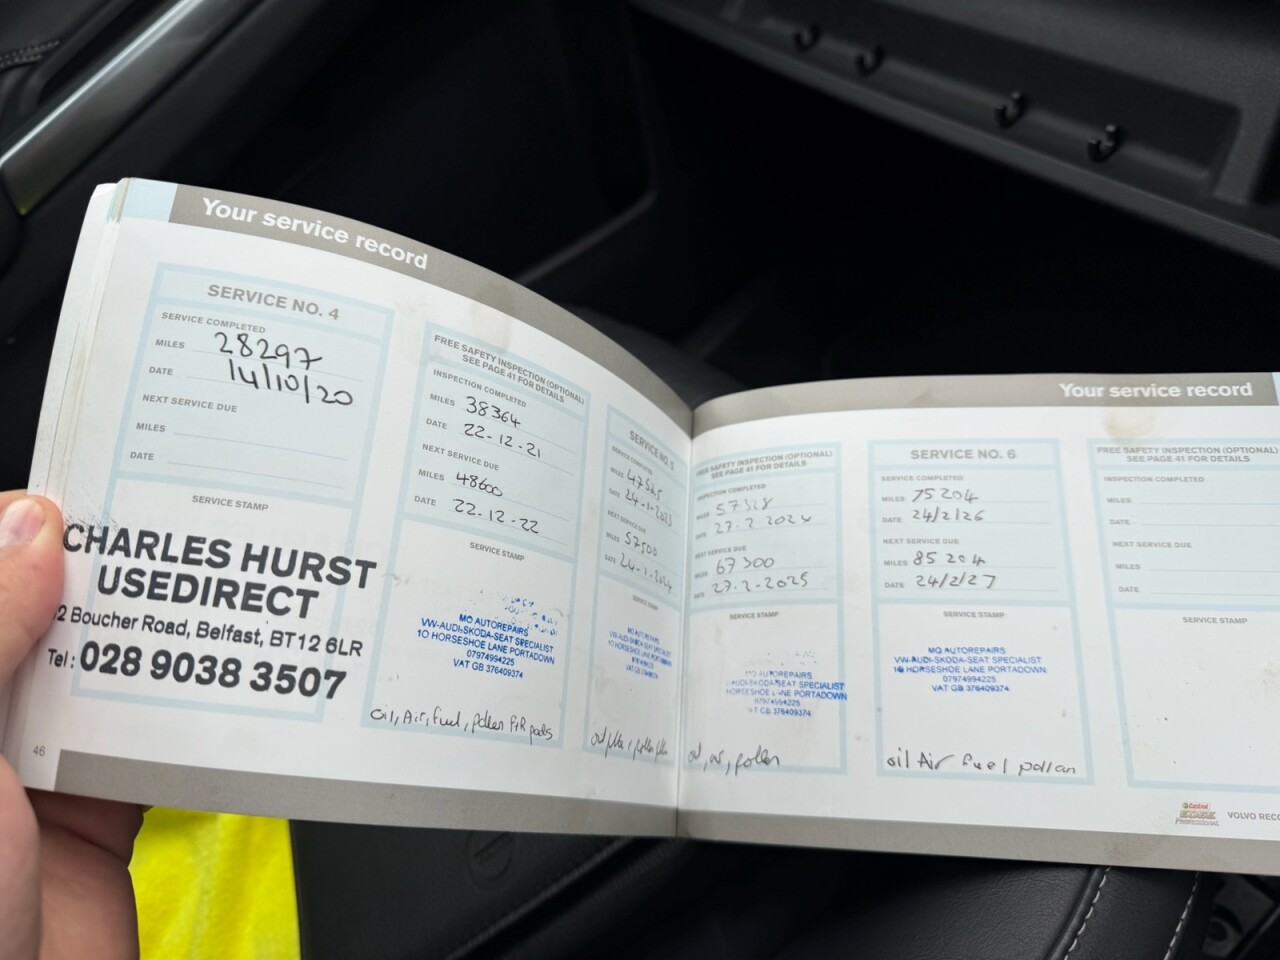 Your service record
SERVICE NO. 4
SERVICE COMPLETED
MILES 28297
DATE 14/10/20
NEXT SERVICE DUE
MILES
DATE
SERVICE STAMP
CHARLES HURST
USEDIRECT
2 Boucher Road, Belfast, BT12 6LR
Tel: 028 9038 3507
46
FREE SAFETY INSPECTION (OPTIONAL)
SEE PAGE 41 FOR DETAILS
INSPECTION COMPLETED
MILES 38364
DATE 22-12-21
NEXT SERVICE DUE
MILES 48600
DATE 22-12-22
SERVICE STAMP
MO AUTOREPAIRS
VW-AUDI-SKODA-SEAT SPECIALIST
10 HORSESHOE LANE PORTADOWN
07974994225
VAT GB 376409374
oil, Air, fuel, pollen F+R pads
SERVICE NO. 5
SERVICE COMPLETED
MILES
DATE 24-1-2023
NEXT SERVICE DUE
MILES 57500
DATE 24-1-2024
SERVICE STAMP
MO AUTOREPAIRS
VW-AUDI-SKODA-SEAT SPECIALIST
10 HORSESHOE LANE PORTADOWN
Your service record
FREE SAFETY INSPECTION (OPTIONAL)
SEE PAGE 41 FOR DETAILS
INSPECTION COMPLETED
MILES
DATE 27.2 2024
NEXT SERVICE DUE
MILES 67300
DATE 27.2-2025
SERVICE STAMP
MO AUTOREPAIRS
AUDI-SKODA-SEAT SPECIALIST
HORSESHOE LANE PORTADOWN
07974994225
VAT GB 376409374
oil, air, pollen
SERVICE NO. 6
SERVICE COMPLETED
MILES 75204
DATE 24/2/26
NEXT SERVICE DUE
MILES 85204
DATE 24/2/27
SERVICE STAMP
MO AUTOREPAIRS
VW-AUDI-SKODA-SEAT SPECIALIST
10 HORSESHOE LANE PORTADOWN
07974994225
VAT GB 376409374
oil Air fuel pollan
FREE SAFETY INSPECTION (OPTIONAL)
SEE PAGE 41 FOR DETAILS
INSPECTION COMPLETED
MILES
DATE
NEXT SERVICE DUE
MILES
DATE
SERVICE STAMP
Castrol
EDGE
PROFESSIONAL
VOLVO RECO